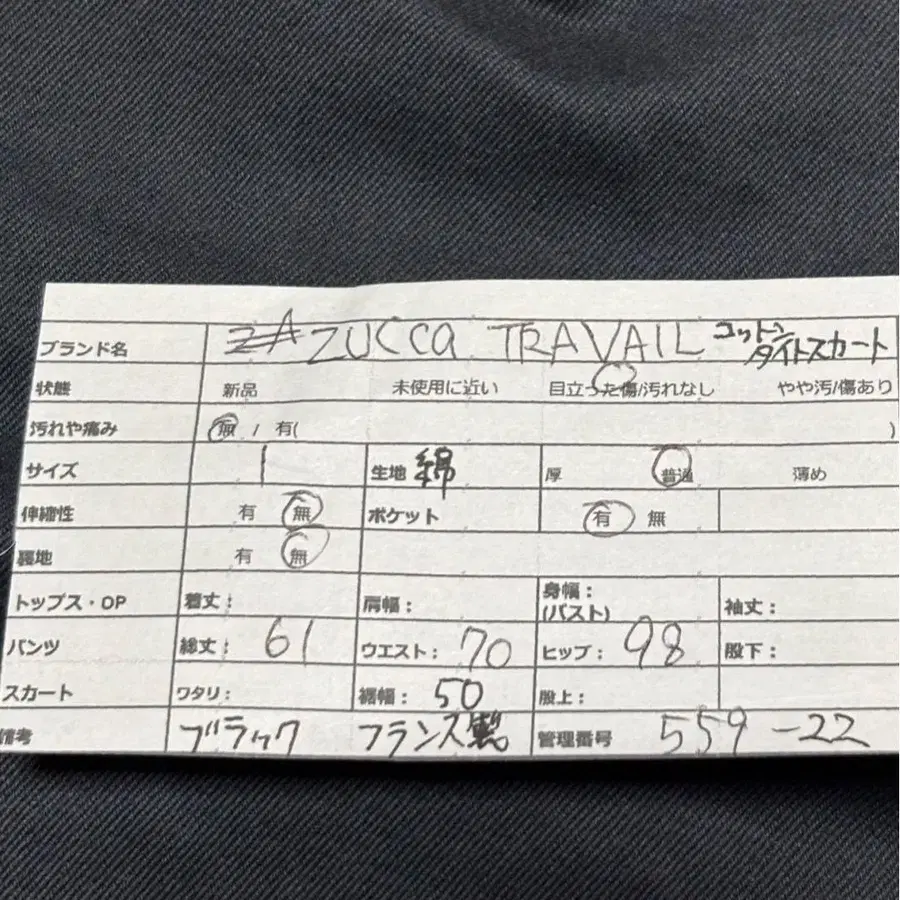 ブランド名 ZUCCa TRAVAIL コットンタイトスカート
状態 新品 未使用に近い 目立った傷/汚れなし やや汚/傷あり
汚れや痛み 無 / 有( )
サイズ 1 生地 綿 厚 普通 薄め
伸縮性 有 無 ポケット 有 無
裏地 有 無
トップス・OP 着丈: 肩幅: 身幅:(バスト) 袖丈:
パンツ 総丈: 61 ウエスト: 70 ヒップ: 98 股下:
スカート ワタリ: 裾幅: 50 股上:
備考 ブラック フランス製 管理番号 559-22